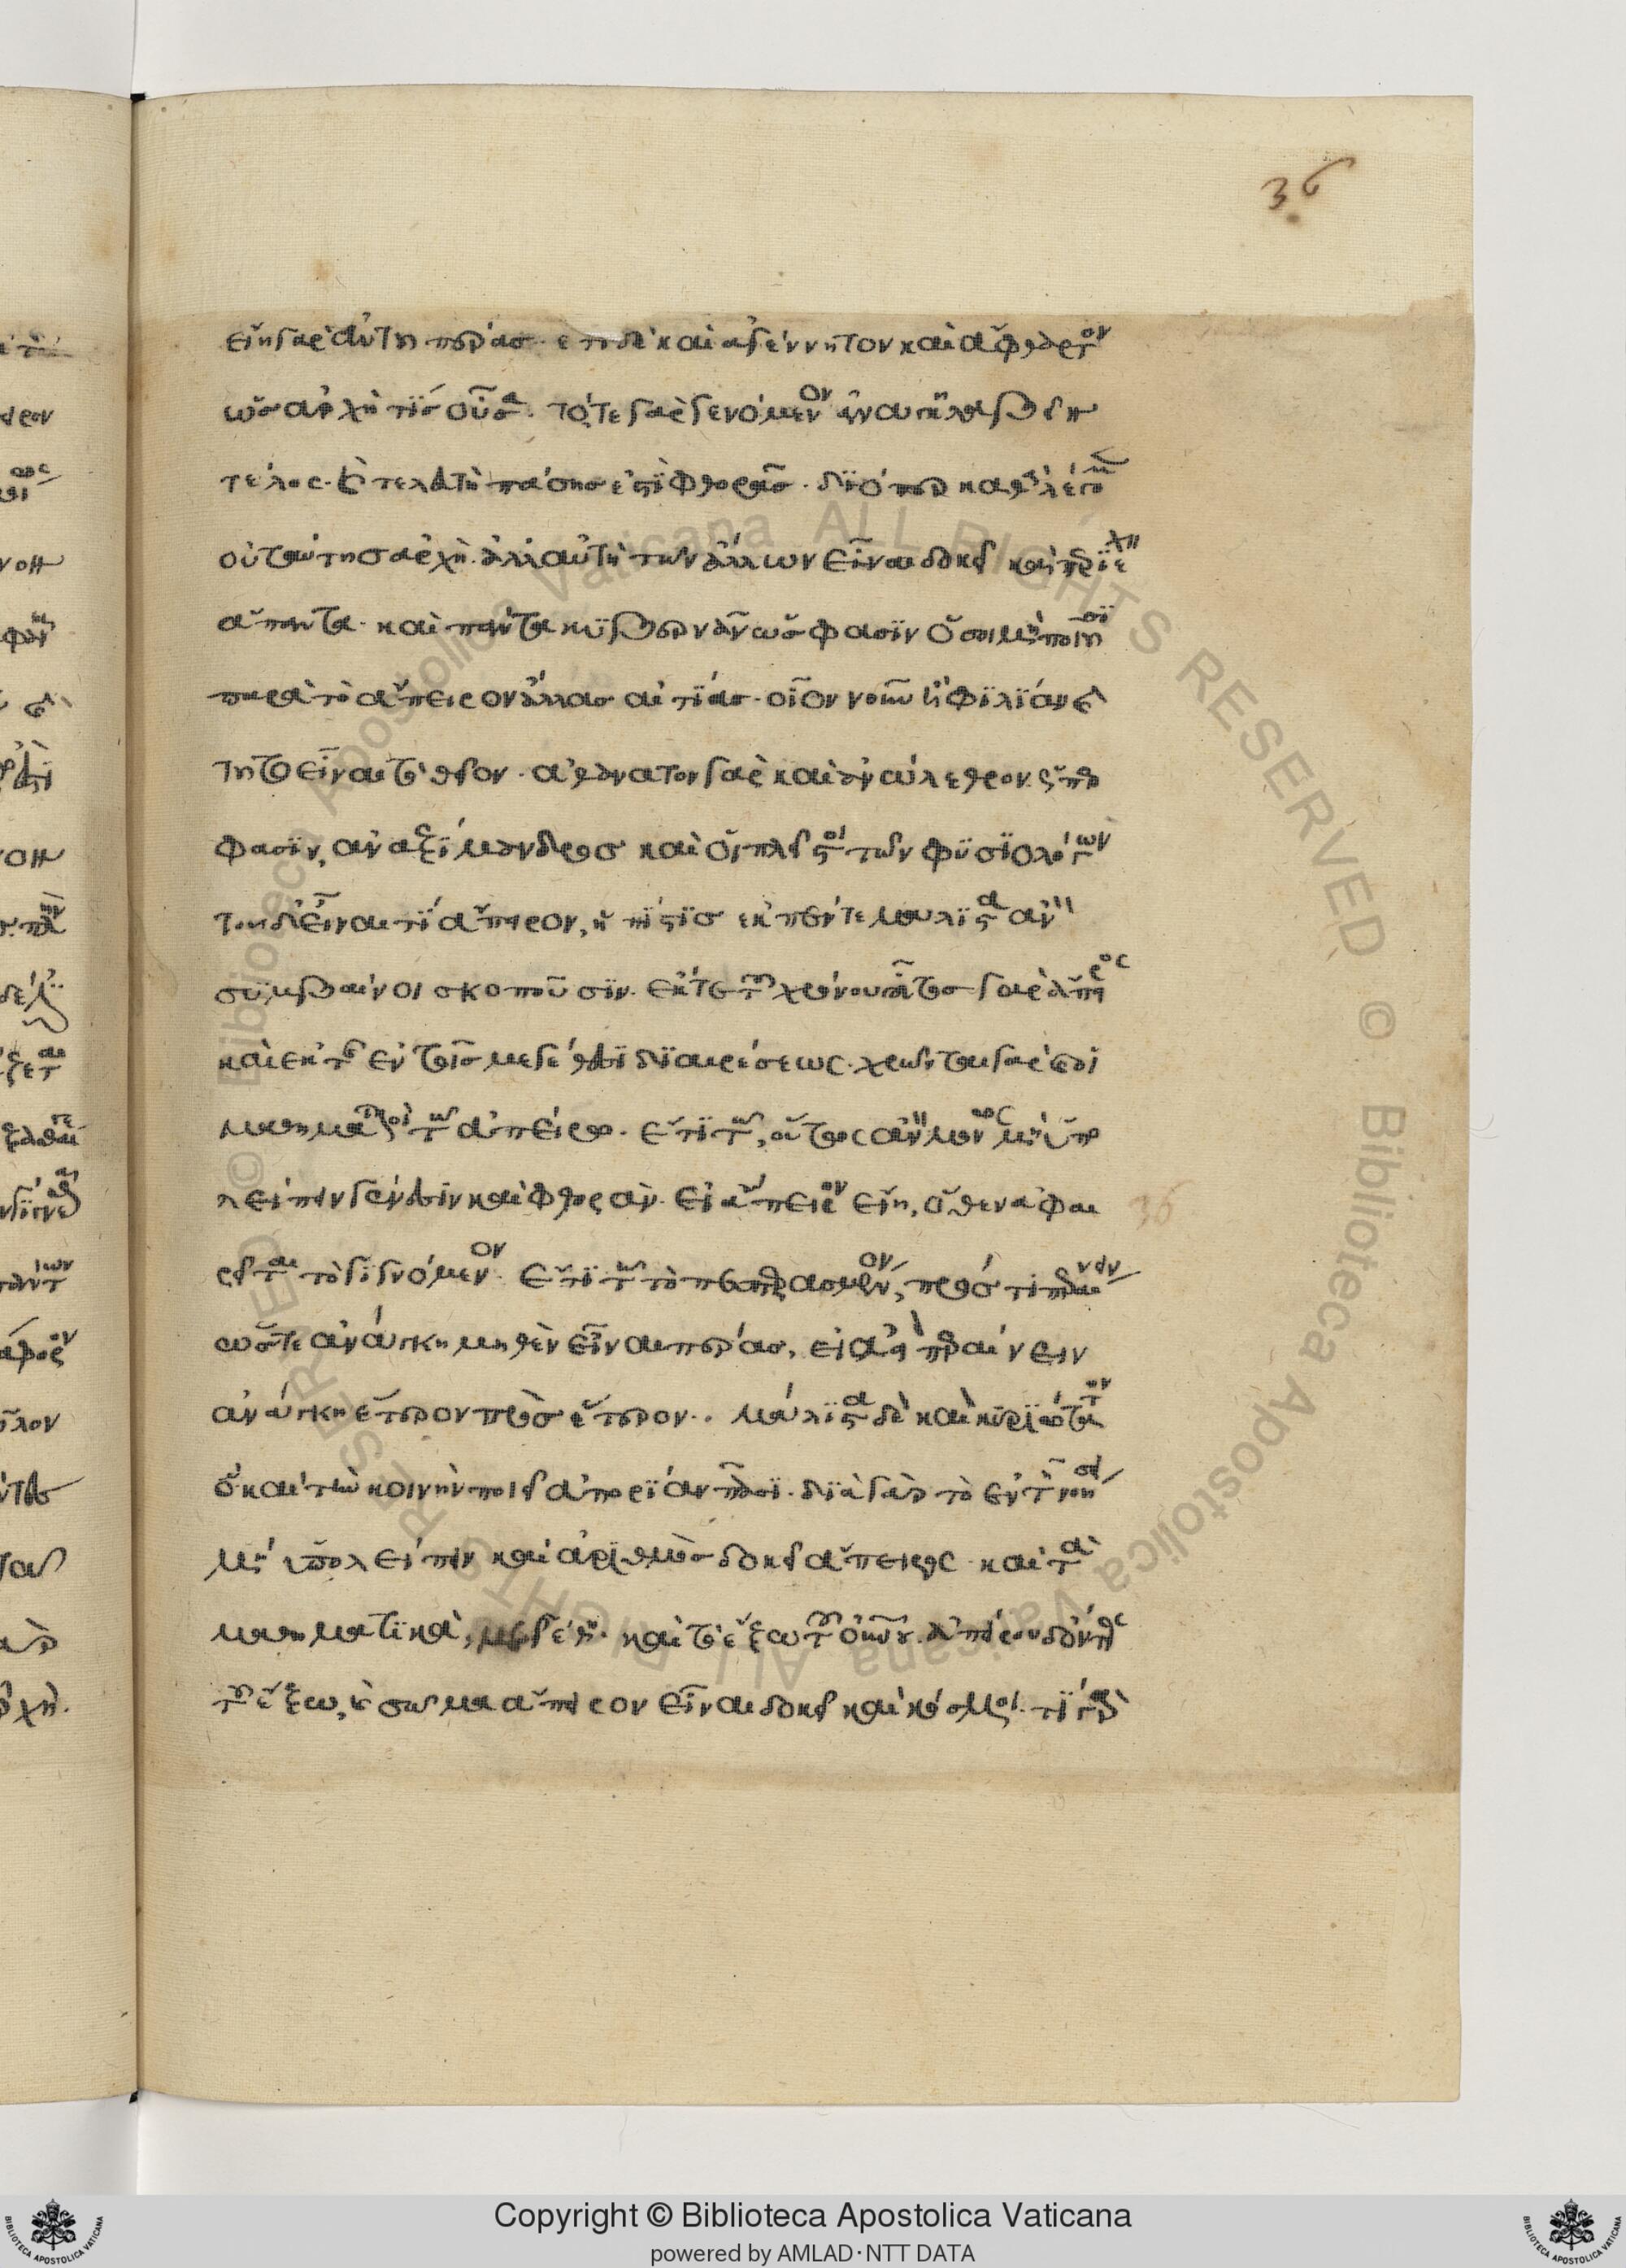 36
εἴη γὰρ αὐτῆ πέρας. ἔτι δὲ καὶ ἀγέννητον καὶ ἄφθαρτον
ὡς ἀρχὴ τὶς οὖσα. τότε γὰρ γενόμενον ἀνάγκη λαβεῖν
τέλος. καὶ τελευτὴ πάσης ἐστὶ φθορᾶς. διόπερ καθὰ λέγομεν
οὐ ταύτης ἀρχὴ. ἀλλ αὐτὴ τῶν ἄλλων εἶναι δοκεῖ καὶ περιέχειν
ἅπαντα. καὶ πάντα κυβερνᾶν ὥς φασιν ὅσοι μὴ ποιοῦσι
παρὰ τὸ ἄπειρον ἄλλας αἰτίας. οἷον νοῦν ἢ φιλίαν καὶ
τοῦτο εἶναι τὸ θεῖον. ἀθάνατον γὰρ καὶ ἀνώλεθρον ὥσπερ
φασὶν, ἀναξίμανδρος καὶ οἱ πλεῖστοι τῶν φυσιολόγων
τοῦ δ εἶναι τὶ ἄπειρον, ἡ πίστις ἐκ πέντε μάλιστα ἂν
συμβαίνοι σκοποῦσιν. ἔκ τε τοῦ χρόνου οὗτος γὰρ ἄπειρος
καὶ ἐκ τῆς ἐν τοῖς μεγέθεσι διαιρέσεως. χρῶνται γὰρ καὶ οἱ
μαθηματικοὶ τῶ ἀπείρω. ἔτι τῶ, οὕτως ἂν μόνως μὴ ὑπο
λείπειν γένεσιν καὶ φθορὰν. εἰ ἄπειρον εἴη, ὅθεν ἀφαι
ρεῖται τὸ γιγνόμενον. ἔτι τῶ τὸ πεπερασμένον, πρός τι περαίνειν
ὥστε ἀνάγκη μηθὲν εἶναι πέρας, εἰ ἀεὶ περαίνειν
ἀνάγκη ἕτερον πρὸς ἕτερον. μάλιστα δὲ καὶ κυριώτατον
ὃ καὶ τὴν κοινὴν ποιεῖ ἀπορίαν πᾶσι. διὰ γὰρ τὸ ἐν τῆ νοήσει
μὴ ὑπολείπειν καὶ ἀριθμὸς δοκεῖ ἄπειρος καὶ τὰ
μαθηματικὰ, μεγέθη. καὶ τὸ ἔξω τοῦ οὐρανοῦ. ἀπείρου δ ὄντος
τοῦ ἔξω, καὶ σῶμα ἄπειρον εἶναι δοκεῖ καὶ κόσμοι. τί γὰρ
36
Copyright © Biblioteca Apostolica Vaticana
powered by AMLAD·NTT DATA